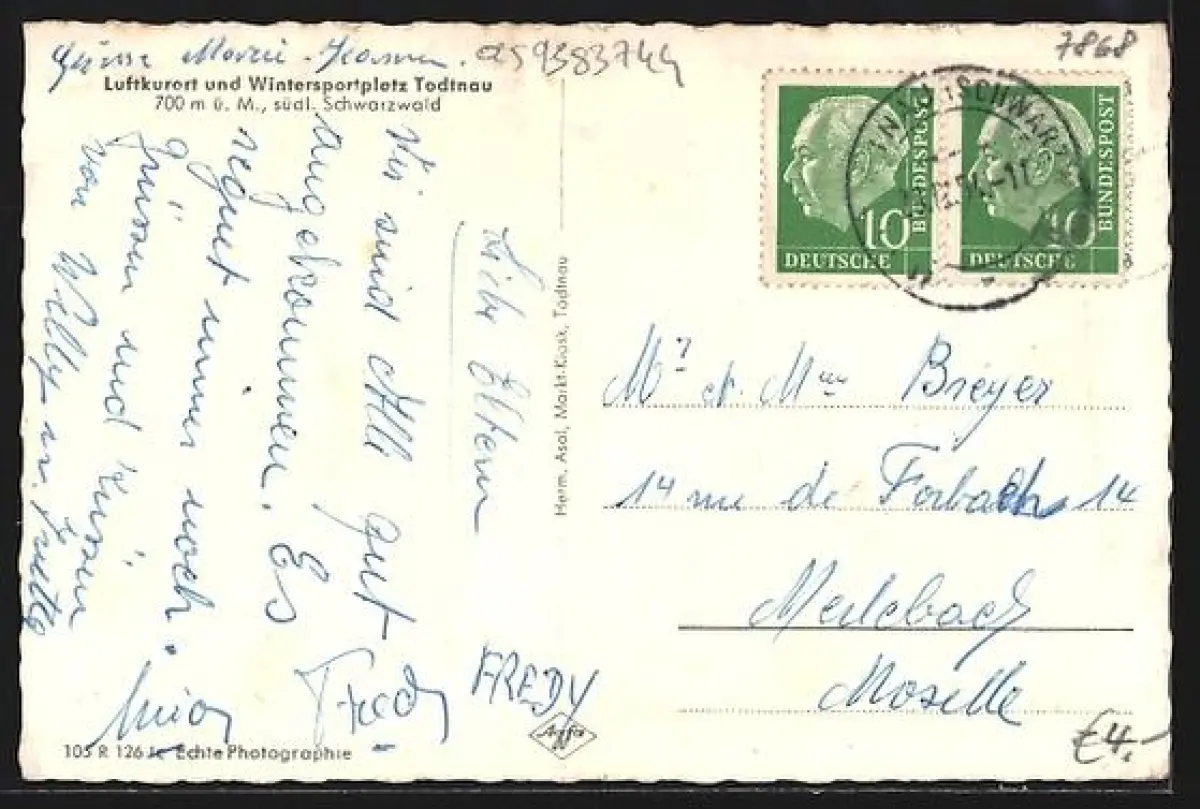 Marie-
0259383744
7868
Luftkurort und Wintersportplatz Todtnau
700 m ü. M., südl. Schwarzwald
Liebe Eltern
Wir sind Alle gut
angekommen. Es
regnet immer noch.
grüssen und küssen
von Willy u.
Fredy
FREDY
DEUTSCHE BUNDESPOST 10
DEUTSCHE BUNDESPOST 10
Herm. Asal, Markt-Kiosk, Todtnau
Mr et Mme Breyer
14 rue de Forbach 14
Merlebach
Moselle
105 R 126 Echte Photographie
Agfa
€4.-